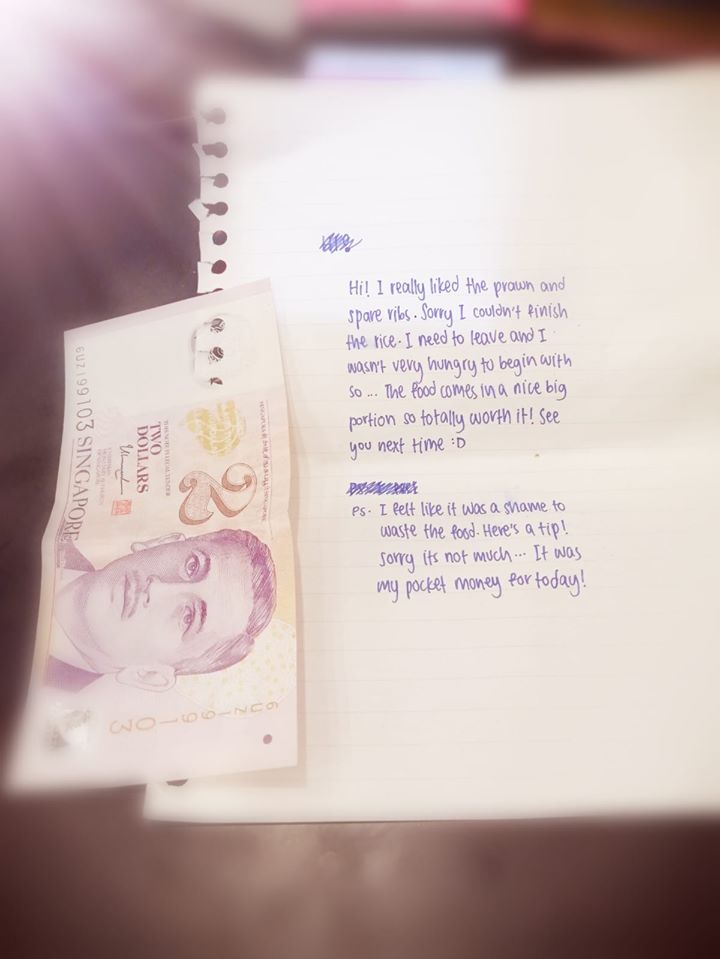 Hi! I really liked the prawn and
spare ribs. Sorry I couldn't finish
the rice. I need to leave and I
wasn't very hungry to begin with
so ... The food comes in a nice big
portion so totally worth it! See
you next time :D
PS. I felt like it was a shame to
waste the food. Here's a tip!
Sorry its not much... It was
my pocket money for today!
2
THIS NOTE IS LEGAL TENDER
TWO
DOLLARS
SINGAPORE